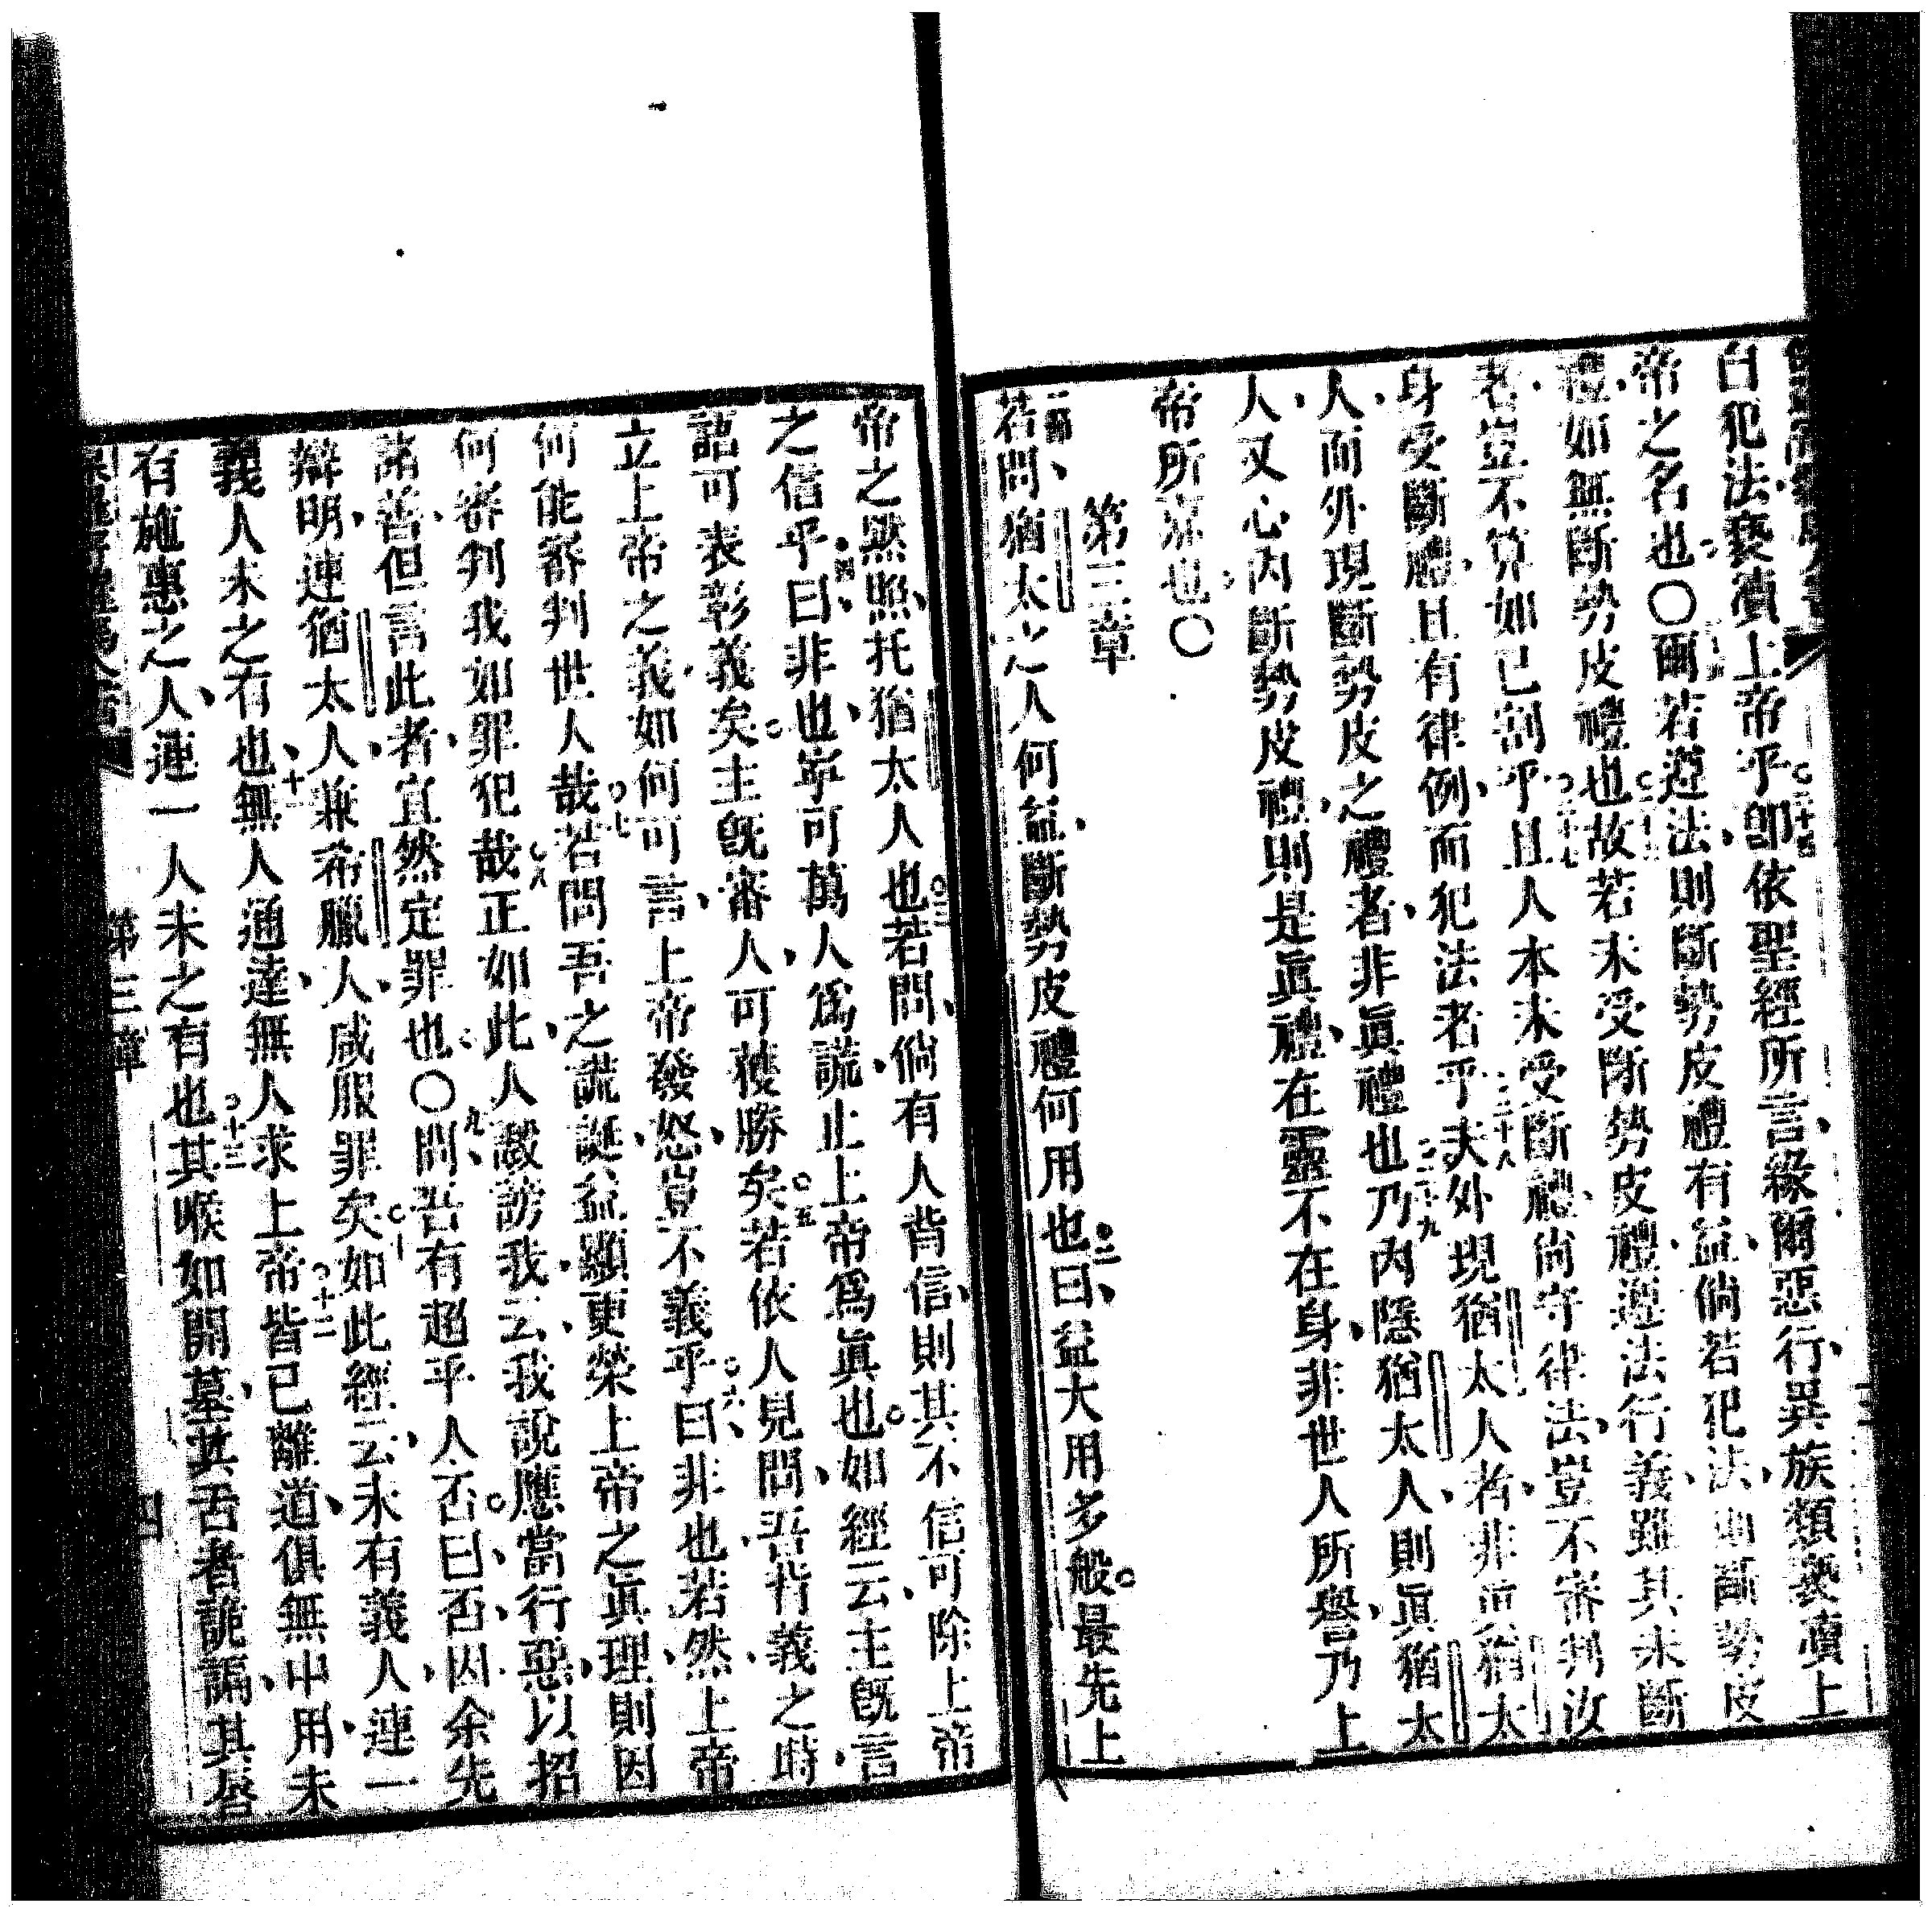 自犯法褻瀆上帝乎。二十四卽依聖經所言、緣爾惡行、異族類褻瀆上
帝之名也。〇爾若遵法、則斷勢皮禮有益、倘若犯法、則斷勢皮
禮、如無斷勢皮禮也。故若未受斷勢皮禮、遵法行義、雖其未斷
者、豈不算如已割乎。二十七且人本未受斷禮、尙守律法、豈不審判汝
身受斷禮、且有律例、而犯法者乎。二十八夫外現猶太人者、非眞猶太
人、而外現斷勢皮之禮者、非眞禮也。二十九乃內隱猶太人、則眞猶太
人、又心內斷勢皮禮、則是眞禮、在靈不在身、非世人所譽、乃上
帝所 也。〇
第三章
一節、若問猶太之人何益、斷勢皮禮何用也。二曰、益大用多般。最先上
帝之默照、托猶太人也。三若問、倘有人背信、則其不信可除上帝
之信乎。四曰、非也、寧可萬人爲謊、止上帝爲眞也。如經云、主旣言
詔可表彰義矣。主旣審人、可獲勝矣。五若依人見問、吾背義之時、
立上帝之義、如何可言、上帝發怒、豈不義乎。六曰、非也、若然、上帝
何能審判世人哉。七若問吾之謊誕、益顯更榮上帝之眞理、則因
何審判我如罪犯哉。八正如此、人譭謗我、云、我說應當行惡、以招
諸善、但言此者、宜然定罪也。〇九、問吾有超乎人否。曰、否、因余先
辯明、連猶太人、兼希臘人、咸服罪矣。十如此經云、未有義人、連一
義人未之有也、十一無人通達、無人求上帝。十二皆已離道、俱無中用、未
有施惠之人、連一人未之有也。十三其喉如開墓、其舌者詭譎、其唇
第三章
四